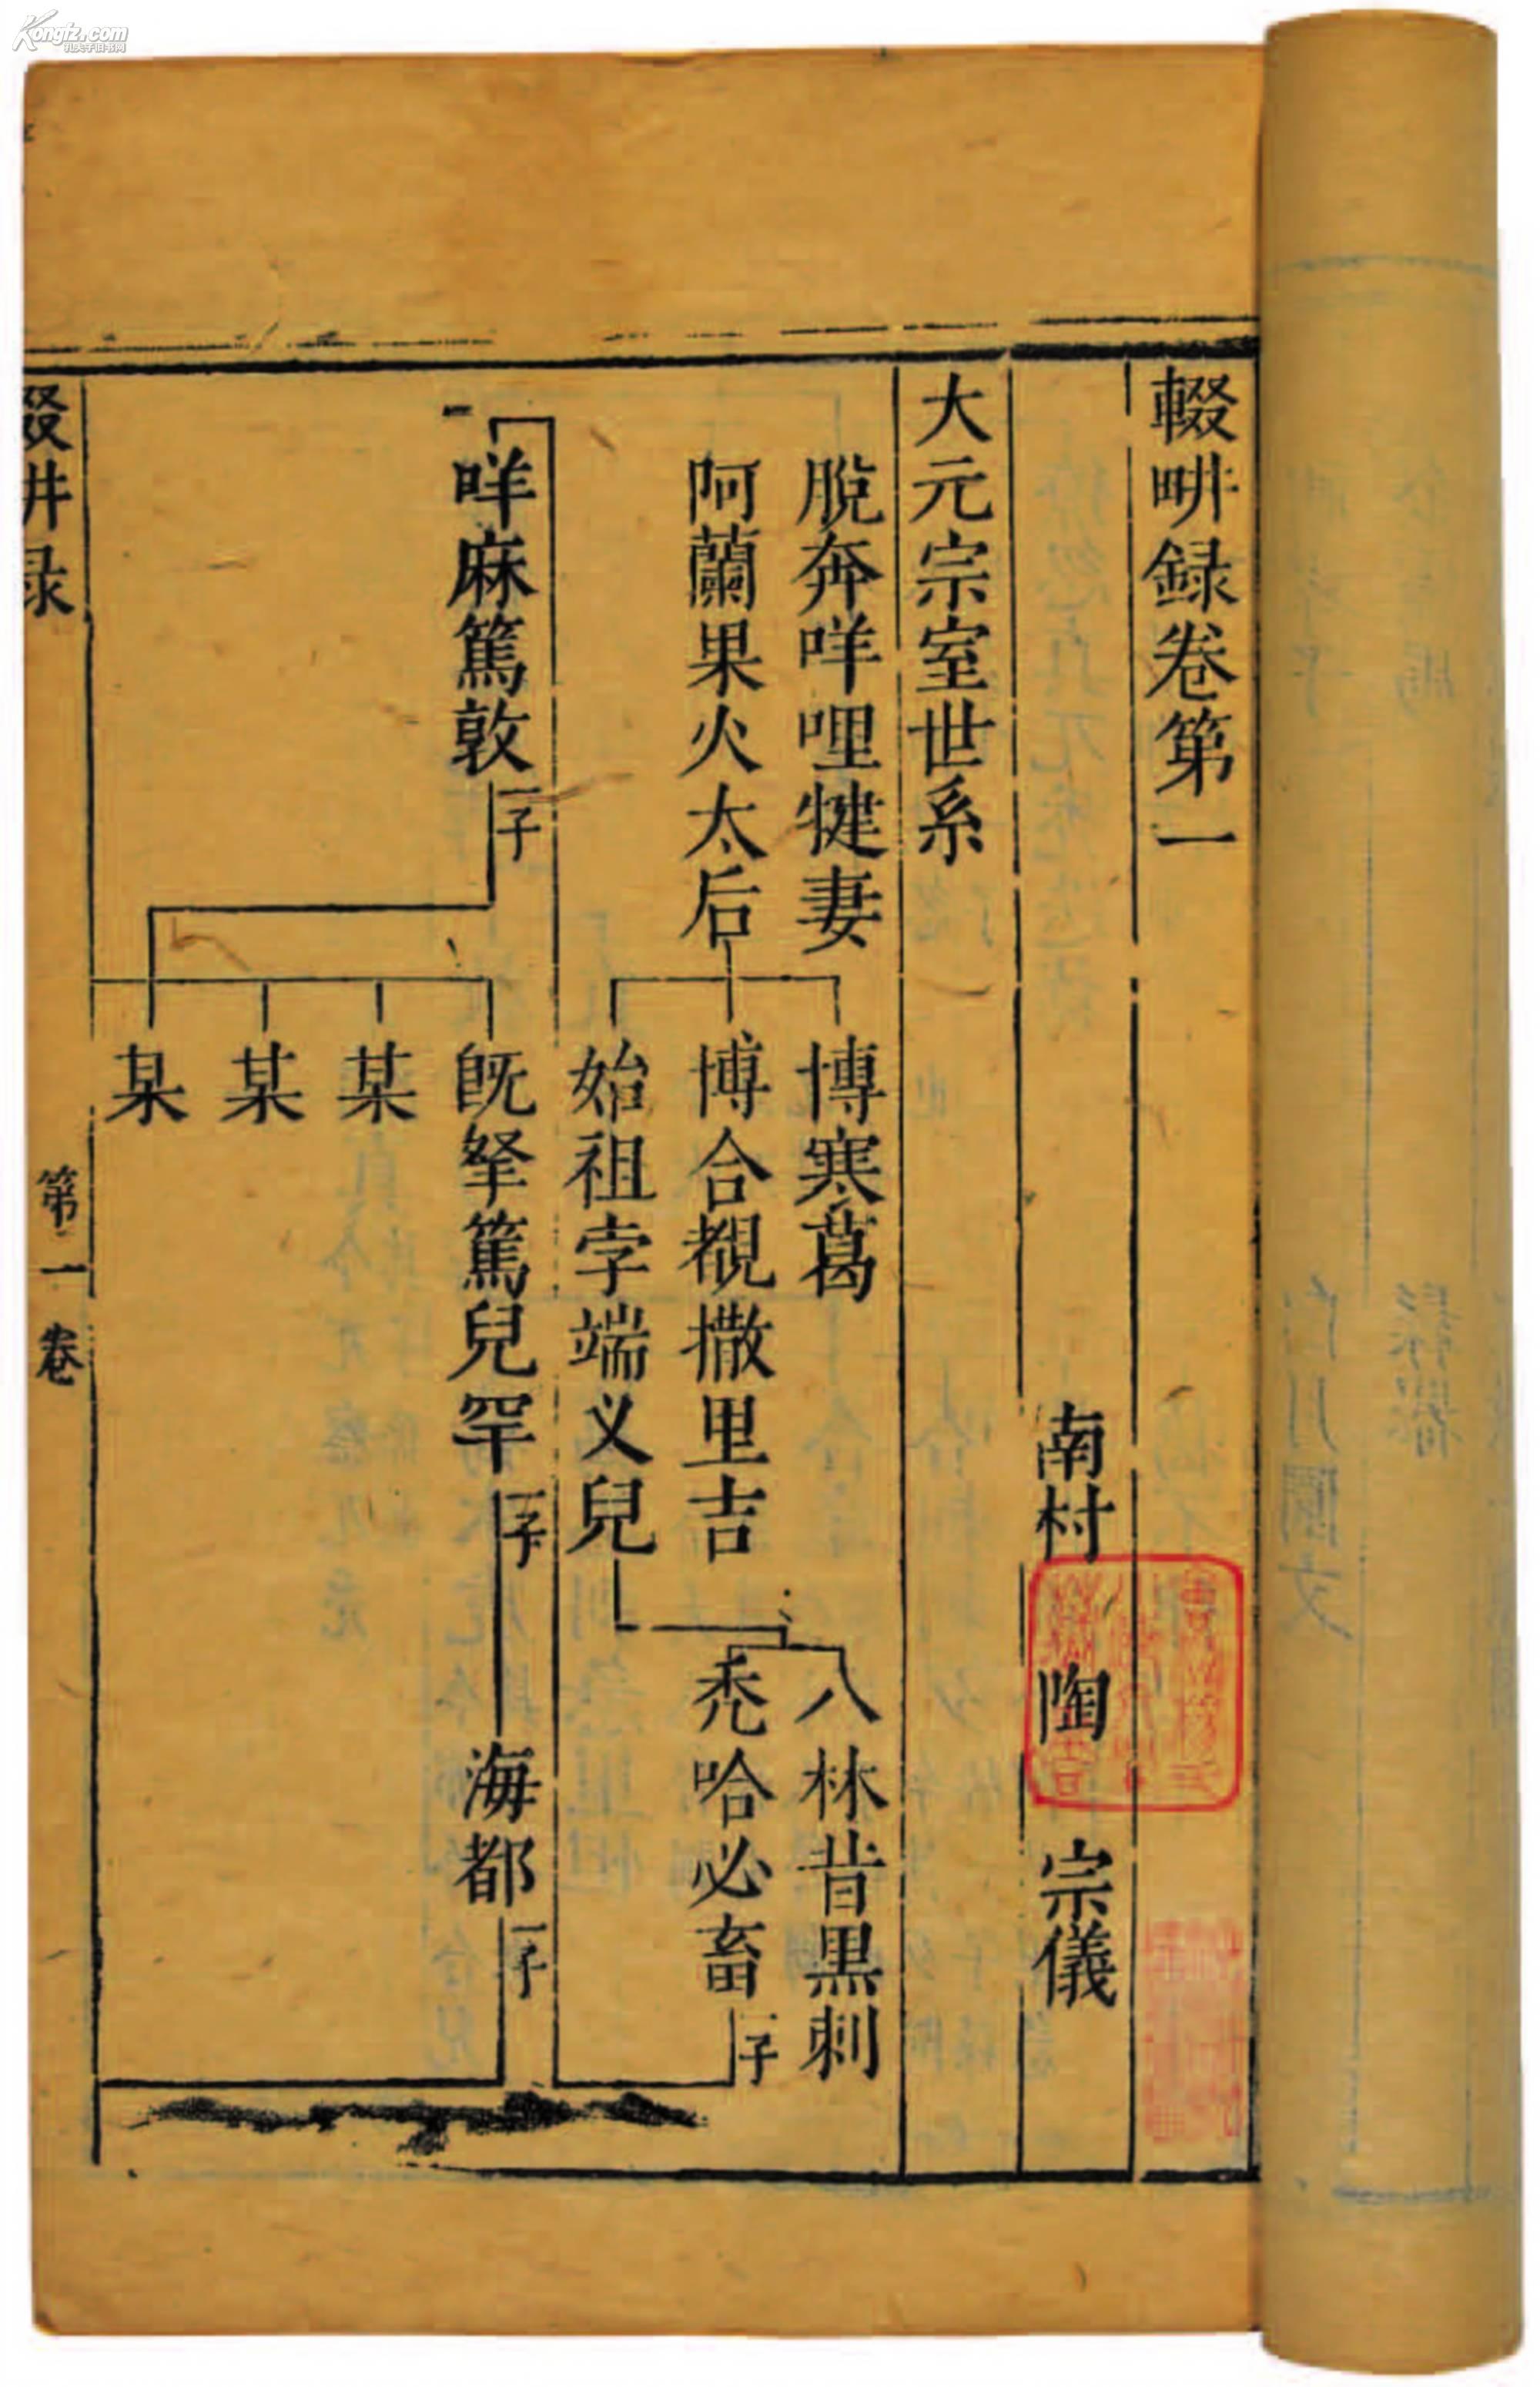 Kongfz.com
孔夫子旧书网
輟畊録卷第一
南村 陶 宗儀
大元宗室世系
脫奔咩哩犍妻
阿蘭果火太后
博寒葛
博合覩撒里吉
始祖孛端义兒
八林昔黒剌
禿哈必畜
一子
咩麻篤敦
一子
既拏篤兒罕
一子
海都
一子
某
某
某
輟畊录
第一卷